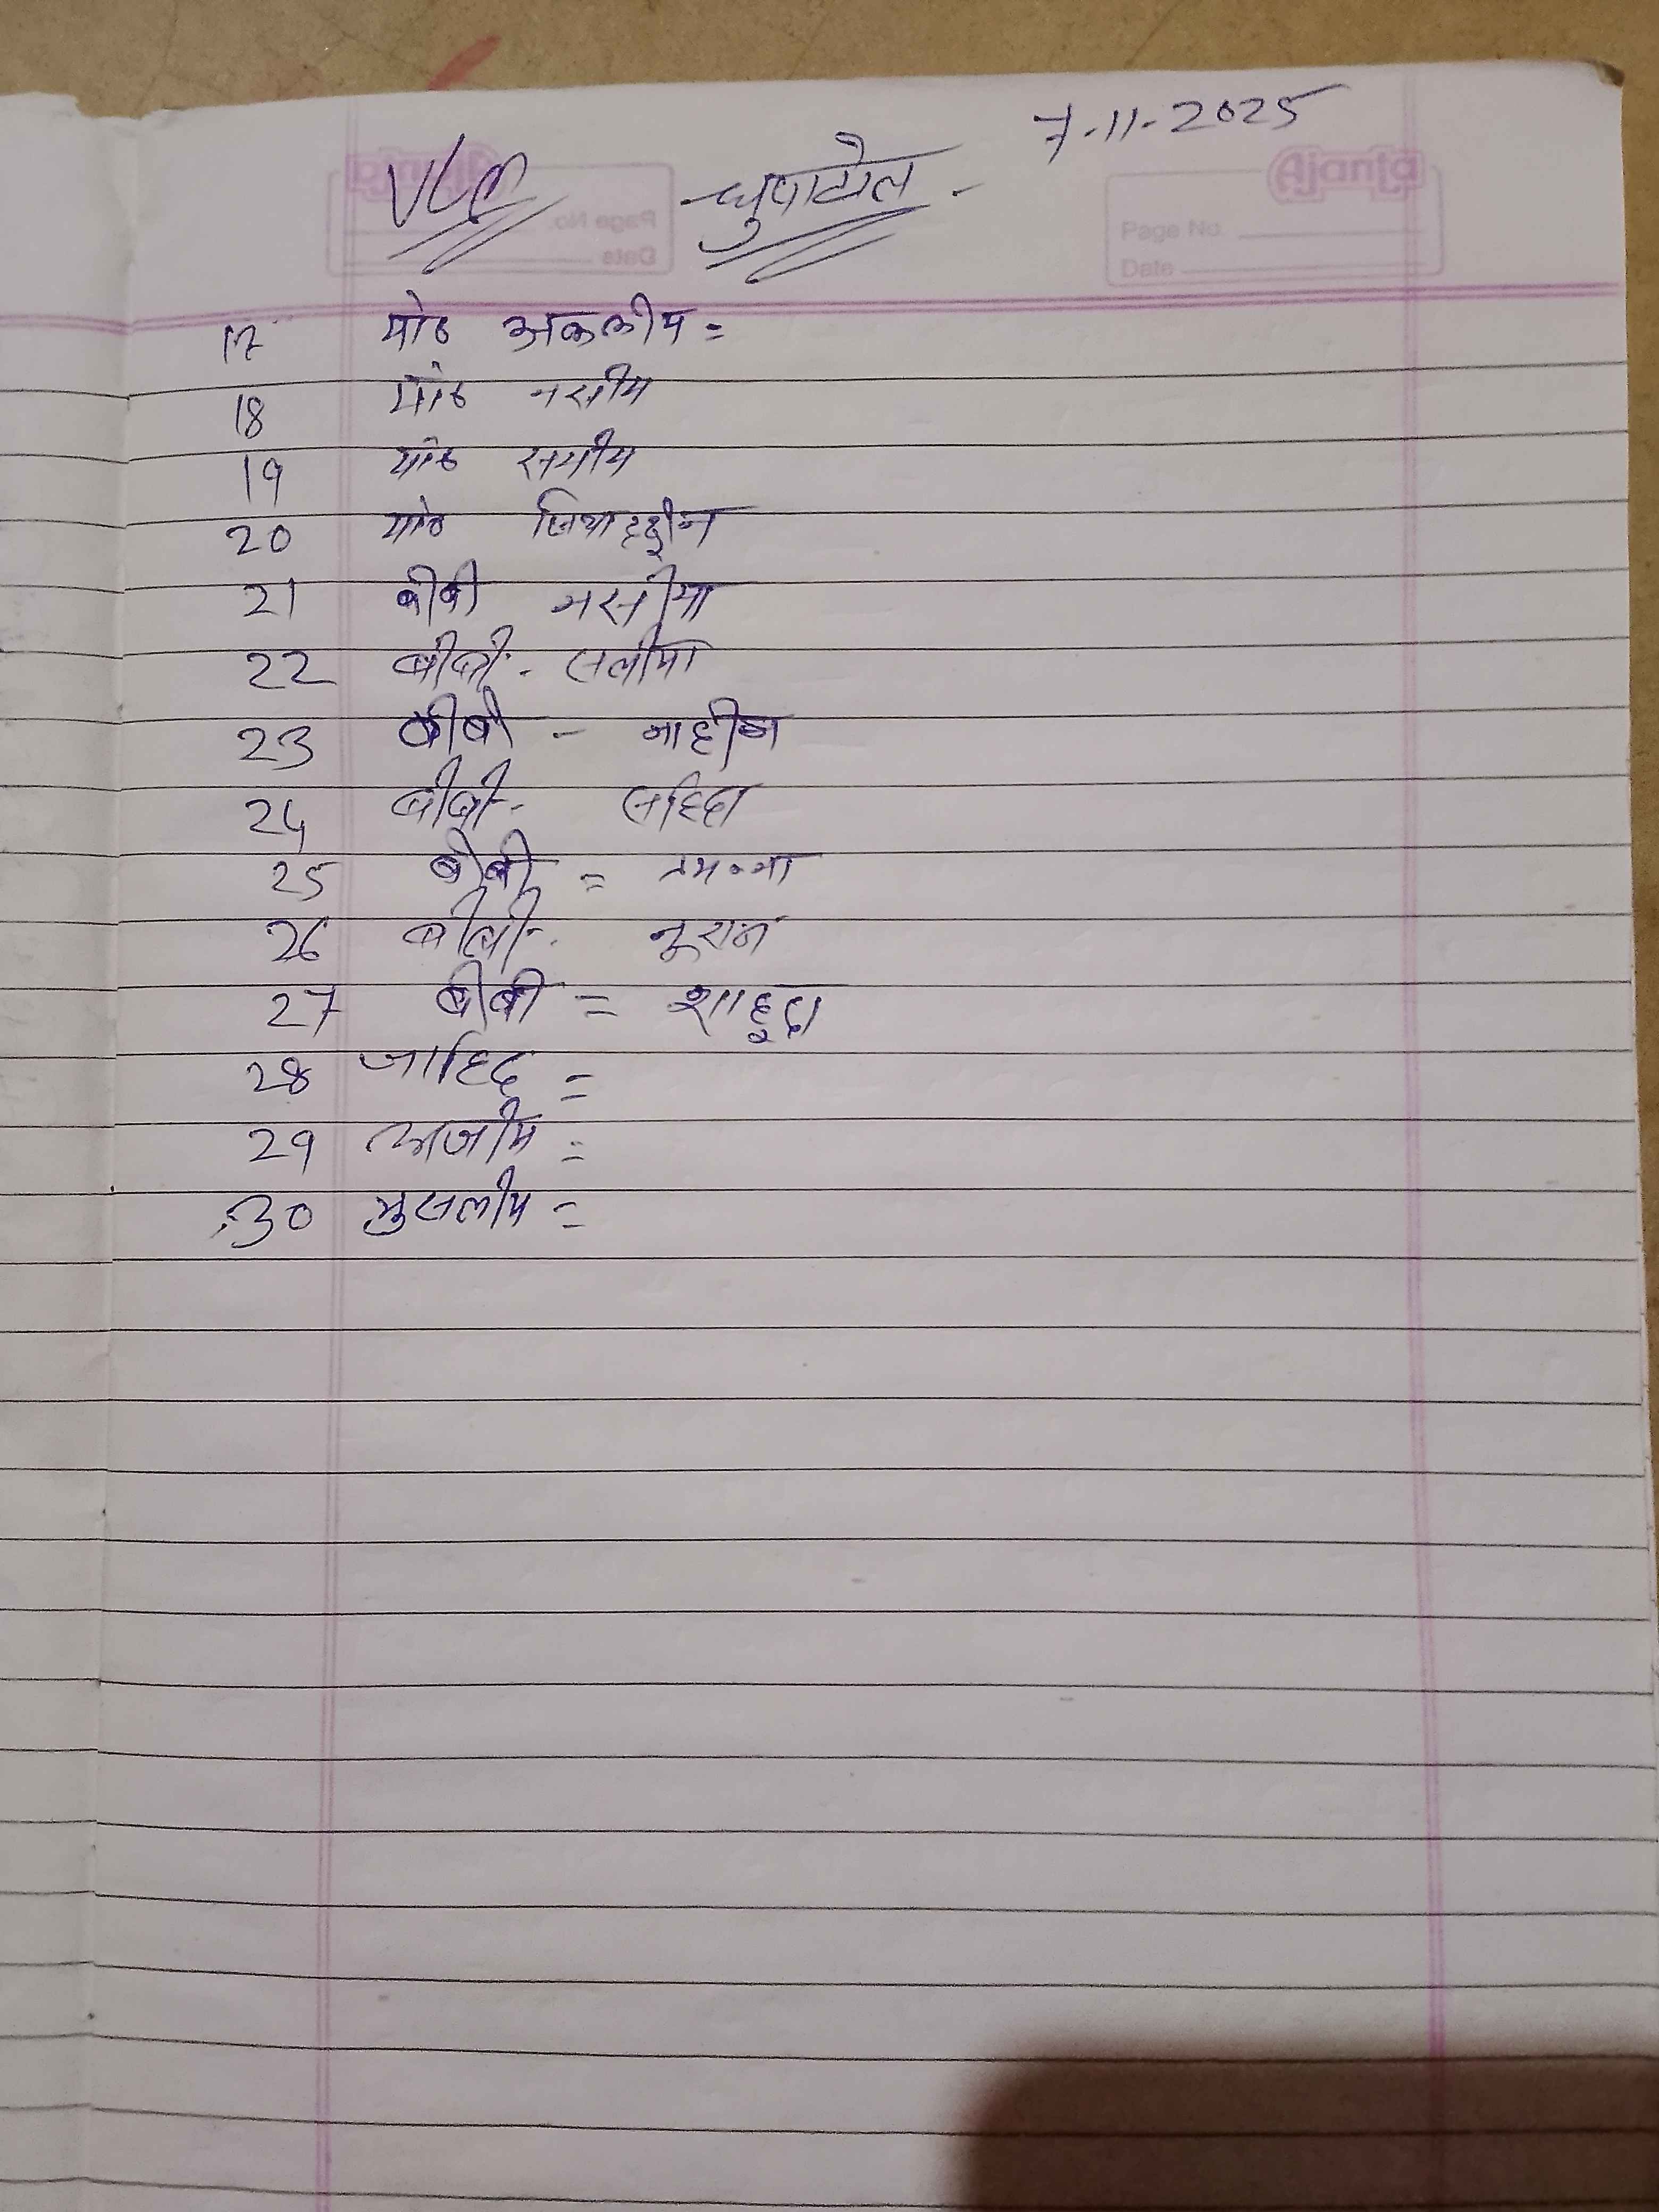 7-11-2025
Ajanta
Page No.
Date
17 मो० अकलीम =
18 मो० नसीम
19 मो० समीम
20 मो०
21 बीबी नसीमा
22 बीबी - सलीमा
23 बीबी - नाहीन
24 बीबी - सहिदा
25 बीबी = तमन्ना
26 बीबी - नूरान
27 बीबी = शाहूदा
28 जाहिद =
29 अजीम =
30 मुसलीम =